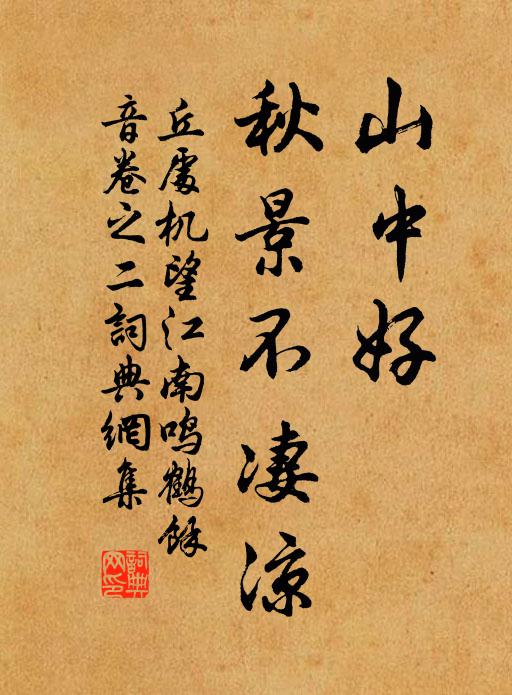 山中好
秋景不凄涼
丘處机望江南鸣鶴餘
音卷之二詞典網集
詞典
网印